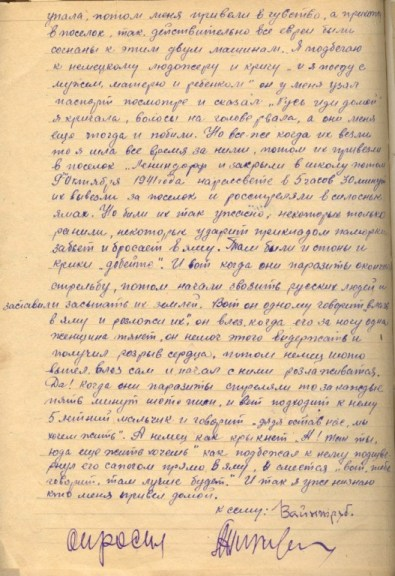 упала, потом меня привели в чувства, а приехав
в поселок, так действительно все евреи были
согнаны к этим двум машинам. Я подбегаю
к немецкому людожеру и кричу "и я поеду с
мужем, матерью и ребенком" он у меня узял
паспорт посмотрел и сказал "Русь иди домой"
я кричала, волосы на голове рвала, а они меня
еще тогда и побили. Но все же когда их везли
то я шла все время за ними, потом их привезли
в поселок "Лениндорф" и закрыли в школу потом
9 Октября 1941 года на рассвете в 5 часов 30 минут
их вывезли за поселок и расстреляли в силосных
ямах. Но били их так ужасно, некоторых только
ранили, некоторых ударит прикладом
забьет и бросает в яму. Там были и стоны и
крики "добейте". И вот когда они паразиты окончили
стрельбу, потом начали свозить русских людей и
заставили засыпать их землей. Вот он одному говорит влазь
в яму и разложи их, он влез, когда его за ногу одна
женщина тянет, он немог этого выдержать и
получил розрыв сердца, потом немец
влез сам и начал с ними розлаживатся.
Да! Когда они паразиты стреляли то за каждые
пять минут и вот подходит к нему
5 летний мальчик и говорит "дядя оставь нас, мы
хочем жить". А немец как крыкнет "А! Жит ты,
юда еще жить хочешь" как подбежал к нему
его сапогом прямо в яму, и смеется "вот, тебе
говорит там лучше будет". И так я уже незнаю
кто меня привел домой.
к сему: Вайнтруб.
опросил